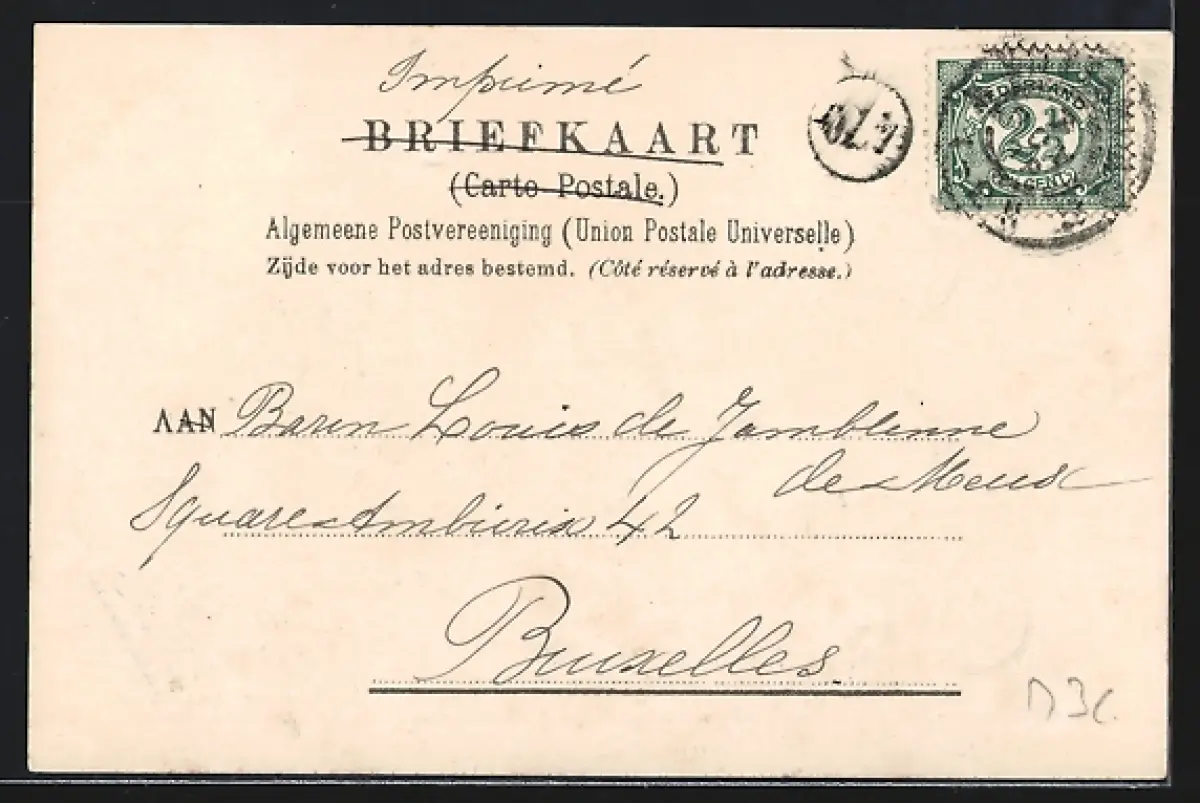 Imprimé
BRIEFKAART
(Carte Postale.)
Algemeene Postvereeniging (Union Postale Universelle)
Zijde voor het adres bestemd. (Côté réservé à l'adresse.)
NEDERLAND
2½
CENT
AAN Baron Louis de Jamblinne
de Meux
Square Ambiorix 42
Bruxelles